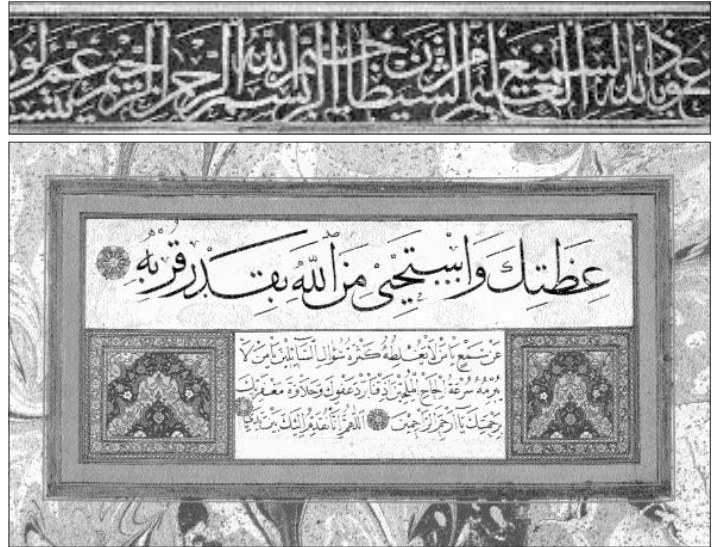 عوذ بالله السميع العليم من الشيطان الرجيم بسم الله الرحمن الرحيم
عظتك واستحيى من الله بقدر قربه
عن سمع يا من لا تغلطه كثرة سؤال السائلين يا من لا
يبرمه سرعة الحاح الملحين اذقنا برد عفوك وحلاوة مغفرتك
رحمتك يا ارحم الراحمين اللهم انا نقدم اليك بين يدي